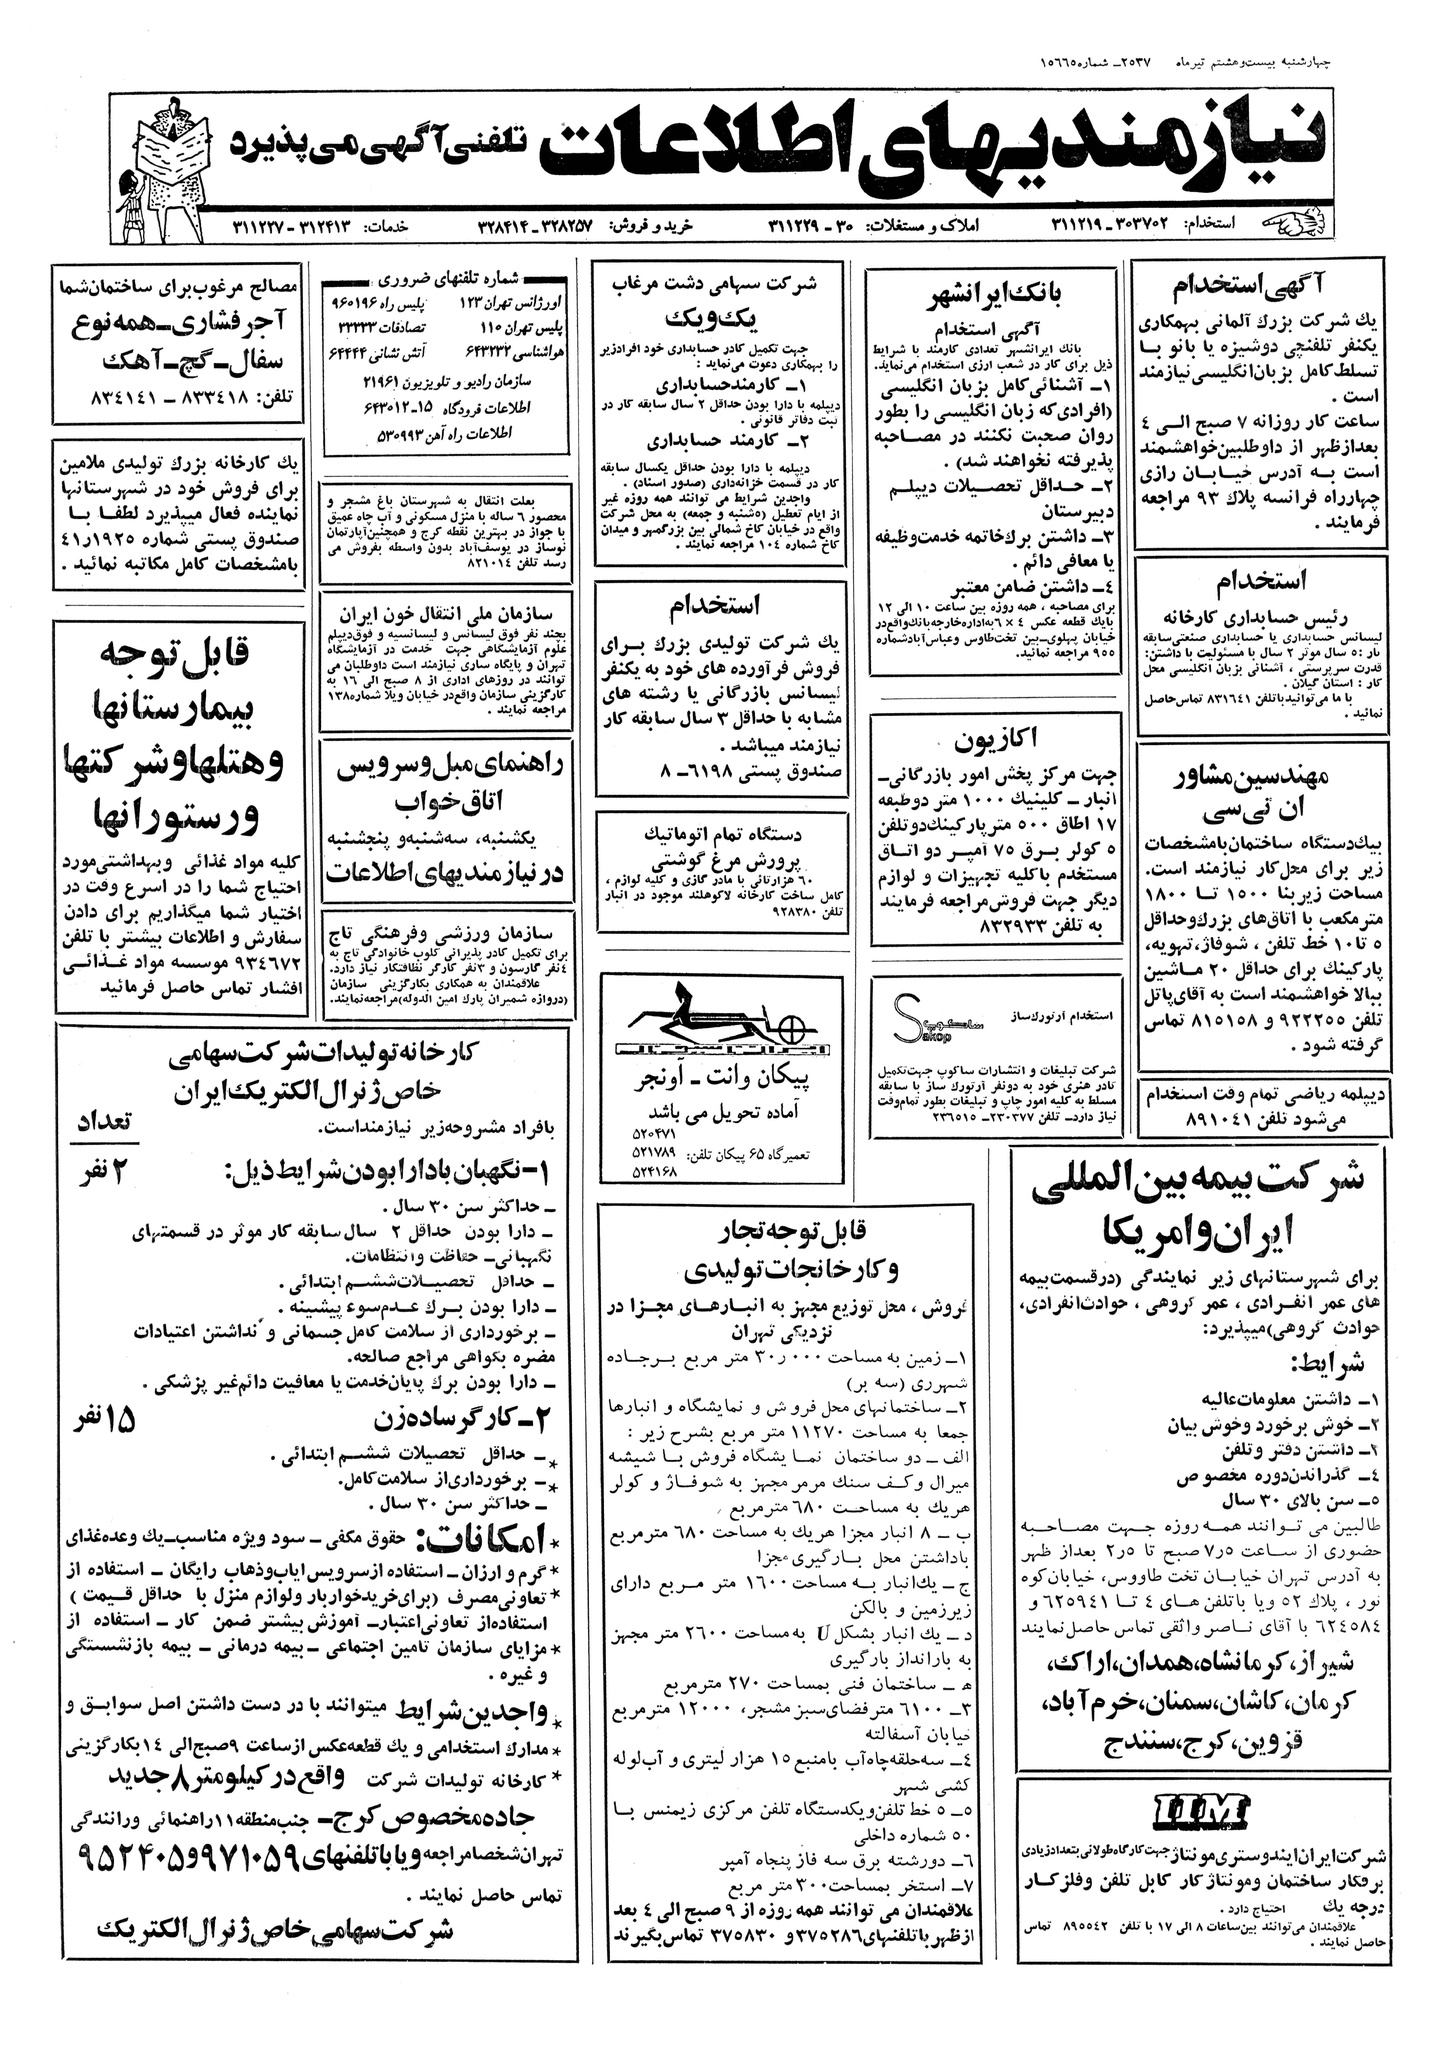 چهارشنبه بیست‌وهشتم تیرماه ۲۵۳۷ـ شماره ۱۵۶۶۵
نیازمندیهای اطلاعات تلفنی آگهی می‌پذیرد
استخدام: ۳۰۳۷۰۲ـ۳۱۱۲۱۹
املاک و مستغلات: ۳۰ـ۳۱۱۲۲۹
خرید و فروش: ۳۲۸۲۵۷ـ۳۲۸۴۱۴
خدمات: ۳۱۲۴۱۳ـ۳۱۱۲۳۷
آگهی استخدام
یك شرکت بزرك آلمانی بهمکاری
یکنفر تلفنچی دوشیزه یا بانو با
تسلط کامل بزبان انگلیسی نیازمند
است .
ساعت کار روزانه ۷ صبح الی ۴
بعدازظهر از داوطلبین خواهشمند
است به آدرس خیابان رازی
چهارراه فرانسه پلاك ۹۳ مراجعه
فرمایند .
استخدام
رئیس حسابداری کارخانه
لیسانس حسابداری یا حسابداری صنعتی سابقه
بار: ۵ سال موثر ۲ سال با مسئولیت با داشتن:
قدرت سرپرستی ، آشنائی بزبان انگلیسی محل
کار : استان گیلان .
با ما می‌توانید با تلفن ۸۳۱۶۴۱ تماس حاصل
نمائید .
مهندسین مشاور
ان تی سی
بیك دستگاه ساختمان با مشخصات
زیر برای محل کار نیازمند است.
مساحت زیربنا ۱۵۰۰ تا ۱۸۰۰
مترمکعب با اتاق‌های بزرك وحداقل
۵ تا ۱۰ خط تلفن ، شوفاژ، تهویه،
پارکینك برای حداقل ۲۰ ماشین
ببالا خواهشمند است به آقای پاتل
تلفن ۹۲۲۲۵۵ و ۸۱۵۱۵۸ تماس
گرفته شود .
دیپلمه ریاضی تمام وقت استخدام
می‌شود تلفن ۸۹۱۰۴۱
بانك ایرانشهر
آگهی استخدام
بانك ایرانشهر تعدادی کارمند با شرایط
ذیل برای کار در شعب ارزی استخدام می‌نماید.
۱ـ آشنائی کامل بزبان انگلیسی
(افرادی‌که زبان انگلیسی را بطور
روان صحبت نکنند در مصاحبه
پذیرفته نخواهند شد) .
۲ـ حداقل تحصیلات دیپلم
دبیرستان
۳ـ داشتن برك خاتمه خدمت وظیفه
یا معافی دائم .
۴ـ داشتن ضامن معتبر
برای مصاحبه ، همه روزه بین ساعت ۱۰ الی ۱۲
با یك قطعه عکس ۴ × ۶ به اداره خارجه بانك واقع در
خیابان پهلوی ـ بین تخت طاوس و عباس آباد شماره
۹۵۵ مراجعه نمائید.
اکازیون
جهت مرکز پخش امور بازرگانی ـ
انبار ـ کلینیك ۱۰۰۰ متر دوطبقه
۱۷ اطاق ۵۰۰ متر پارکینك دوتلفن
۵ کولر برق ۷۵ آمپر دو اتاق
مستخدم با کلیه تجهیزات و لوازم
دیگر جهت فروش مراجعه فرمایند
به تلفن ۸۳۲۹۳۳
استخدام آرتورك ساز
ساکوپ
Sakop
شرکت تبلیغات و انتشارات ساکوپ جهت تکمیل
کادر هنری خود به دونفر آرتورك ساز با سابقه
مسلط به کلیه امور چاپ و تبلیغات بطور تمام وقت
نیاز دارد ـ تلفن ۲۳۰۳۷۷ـ ۲۳۶۵۱۵
شرکت سهامی دشت مرغاب
یك و یك
جهت تکمیل کادر حسابداری خود افراد زیر
را بهمکاری دعوت می‌نماید :
۱ـ کارمند حسابداری
دیپلمه با دارا بودن حداقل ۲ سال سابقه کار در
ثبت دفاتر قانونی .
۲ـ کارمند حسابداری
دیپلمه با دارا بودن حداقل یکسال سابقه
کار در قسمت خزانه‌داری (صدور اسناد) .
واجدین شرایط می توانند همه روزه غیر
از ایام تعطیل (۵شنبه و جمعه) به محل شرکت
واقع در خیابان کاخ شمالی بین بزرگمهر و میدان
کاخ شماره ۱۰۴ مراجعه نمایند .
استخدام
یك شرکت تولیدی بزرك برای
فروش فرآورده های خود به یکنفر
لیسانس بازرگانی یا رشته های
مشابه با حداقل ۳ سال سابقه کار
نیازمند میباشد .
صندوق پستی ۶۱۹۸ـ ۸
دستگاه تمام اتوماتیك
پرورش مرغ گوشتی
۶۰ هزارتائی با مادر گازی و کلیه لوازم ،
کامل ساخت کارخانه لاکوهلند موجود در انبار
تلفن ۹۲۸۳۸۰
پیکان وانت ـ آونجر
آماده تحویل می باشد
تعمیرگاه ۶۵ پیکان تلفن:
۵۲۰۴۷۱
۵۲۱۷۸۹
۵۲۴۱۶۸
شماره تلفنهای ضروری
اورژانس تهران ۱۲۳
پلیس راه ۹۶۰۱۹۶
پلیس تهران ۱۱۰
تصادفات ۳۳۳۳۳
هواشناسی ۶۴۳۲۳۲
آتش نشانی ۶۴۴۴۴
سازمان رادیو و تلویزیون ۲۱۹۶۱
اطلاعات فرودگاه ۱۵ـ۶۴۳۰۱۲
اطلاعات راه آهن ۵۳۰۹۹۳
بعلت انتقال به شهرستان باغ مشجر و
محصور ۶ ساله با منزل مسکونی و آب چاه عمیق
با جواز در بهترین نقطه کرج و همچنین آپارتمان
نوساز در یوسف‌آباد بدون واسطه بفروش می
رسد تلفن ۸۲۱۰۱۴
سازمان ملی انتقال خون ایران
بچند نفر فوق لیسانس و لیسانسیه و فوق دیپلم
علوم آزمایشگاهی جهت خدمت در آزمایشگاه
تهران و پایگاه ساری نیازمند است داوطلبان می
توانند در روزهای اداری از ۸ صبح الی ۱۶ به
کارگزینی سازمان واقع در خیابان ویلا شماره ۱۳۸
مراجعه نمایند .
راهنمای مبل و سرویس
اتاق خواب
یکشنبه، سه‌شنبه و پنجشنبه
در نیازمندیهای اطلاعات
سازمان ورزشی وفرهنگی تاج
برای تکمیل کادر پذیرائی کلوپ خانوادگی تاج به
۴ نفر گارسون و ۳ نفر کارگر نظافتکار نیاز دارد.
علاقمندان به همکاری بکارگزینی سازمان
(دروازه شمیران پارك امین الدوله) مراجعه نمایند.
مصالح مرغوب برای ساختمان شما
آجر فشاری ـ همه نوع
سفال ـ گچ ـ آهك
تلفن: ۸۳۳۴۱۸ ـ ۸۳۴۱۴۱
یك کارخانه بزرك تولیدی ملامین
برای فروش خود در شهرستانها
نماینده فعال میپذیرد لطفا با
صندوق پستی شماره ۴۱٫۱۹۲۵
بامشخصات کامل مکاتبه نمائید .
قابل توجه
بیمارستانها
وهتلها و شرکتها
و رستورانها
کلیه مواد غذائی وبهداشتی مورد
احتیاج شما را در اسرع وقت در
اختیار شما میگذاریم برای دادن
سفارش و اطلاعات بیشتر با تلفن
۹۳۴۶۷۲ موسسه مواد غذائی
افشار تماس حاصل فرمائید
شرکت بیمه بین المللی
ایران و امریکا
برای شهرستانهای زیر نمایندگی (درقسمت بیمه
های عمر انفرادی ، عمر گروهی ، حوادث انفرادی،
حوادث گروهی) میپذیرد:
شرایط:
۱ـ داشتن معلومات عالیه
۲ـ خوش برخورد وخوش بیان
۳ـ داشتن دفتر و تلفن
۴ـ گذراندن دوره مخصوص
۵ـ سن بالای ۳۰ سال
طالبین می توانند همه روزه جهت مصاحبه
حضوری از ساعت ۷٫۵ صبح تا ۲٫۵ بعداز ظهر
به آدرس تهران خیابان تخت طاووس، خیابان کوه
نور ، پلاك ۵۲ ویا با تلفن های ۴ تا ۶۲۵۹۴۱ و
۶۲۴۵۸۴ با آقای ناصر واثقی تماس حاصل نمایند
شیراز، کرمانشاه، همدان، اراك،
کرمان، کاشان، سمنان، خرم آباد،
قزوین، کرج، سنندج
IIM
شرکت ایران ایندوستری مونتاژ جهت کارگاه طولانی بتعداد زیادی
برقکار ساختمان ومونتاژ کار کابل تلفن و فلزکار
درجه یك احتیاج دارد .
علاقمندان می‌توانند بین ساعات ۸ الی ۱۷ با تلفن ۸۹۵۵۴۲ تماس
حاصل نمایند .
قابل توجه تجار
و کارخانجات تولیدی
فروش ، محل توزیع مجهز به انبارهای مجزا در
نزدیکی تهران
۱ـ زمین به مساحت ۳۰٫۰۰۰ متر مربع برجاده
شهرری (سه بر)
۲ـ ساختمانهای محل فروش و نمایشگاه و انبارها
جمعا به مساحت ۱۱۲۷۰ متر مربع بشرح زیر :
الف ـ دو ساختمان نمایشگاه فروش با شیشه
میرال وکف سنك مرمر مجهز به شوفاژ و کولر
هریك به مساحت ۶۸۰ مترمربع
ب ـ ۸ انبار مجزا هریك به مساحت ۶۸۰ مترمربع
باداشتن محل بارگیری مجزا
ج ـ یك انبار به مساحت ۱۶۰۰ متر مربع دارای
زیرزمین و بالکن
د ـ یك انبار بشکل U به مساحت ۲۶۰۰ متر مجهز
به بارانداز بارگیری
ه ـ ساختمان فنی بمساحت ۲۷۰ مترمربع
۳ـ ۶۱۰۰ متر فضای سبز مشجر، ۱۲۰۰۰ مترمربع
خیابان آسفالته
۴ـ سه حلقه چاه آب بامنبع ۱۵ هزار لیتری و آب لوله
کشی شهر
۵ـ ۵ خط تلفن ویکدستگاه تلفن مرکزی زیمنس با
۵۰ شماره داخلی
۶ـ دورشته برق سه فاز پنجاه آمپر
۷ـ استخر بمساحت ۳۰۰ متر مربع
علاقمندان می توانند همه روزه از ۹ صبح الی ۴ بعد
از ظهر با تلفنهای ۳۷۵۲۸۶ و ۳۷۵۸۳۰ تماس بگیرند
کارخانه تولیدات شرکت سهامی
خاص ژنرال الکتریك ایران
بافراد مشروحه زیر نیازمند است.
تعداد
۱ـ نگهبان بادارا بودن شرایط ذیل: ۲ نفر
ـ حداکثر سن ۳۰ سال .
ـ دارا بودن حداقل ۲ سال سابقه کار موثر در قسمتهای
نگهبانی ـ حفاظت وانتظامات.
ـ حداقل تحصیلات ششم ابتدائی .
ـ دارا بودن برك عدم سوء پیشینه .
ـ برخورداری از سلامت کامل جسمانی و نداشتن اعتیادات
مضره بگواهی مراجع صالحه.
ـ دارا بودن برك پایان خدمت یا معافیت دائم غیر پزشکی .
۲ـ کارگر ساده زن ۱۵ نفر
*ـ حداقل تحصیلات ششم ابتدائی .
*ـ برخورداری از سلامت کامل.
ـ حداکثر سن ۳۰ سال .
* امکانات: حقوق مکفی ـ سود ویژه مناسب ـ یك وعده غذای
* گرم و ارزان ـ استفاده از سرویس ایاب وذهاب رایگان ـ استفاده از
* تعاونی مصرف (برای خرید خواربار ولوازم منزل با حداقل قیمت)
استفاده از تعاونی اعتبار ـ آموزش بیشتر ضمن کار ـ استفاده از
* مزایای سازمان تامین اجتماعی ـ بیمه درمانی ـ بیمه بازنشستگی
و غیره .
* واجدین شرایط میتوانند با در دست داشتن اصل سوابق و
* مدارك استخدامی و یك قطعه عکس از ساعت ۹ صبح الی ۱۴ بکارگزینی
* کارخانه تولیدات شرکت واقع در کیلومتر ۸ جدید
جاده مخصوص کرج ـ جنب منطقه ۱۱ راهنمائی ورانندگی
تهران شخصا مراجعه و یا با تلفنهای ۹۷۱۰۵۹ و ۹۵۲۴۰۵
تماس حاصل نمایند .
شرکت سهامی خاص ژنرال الکتریك